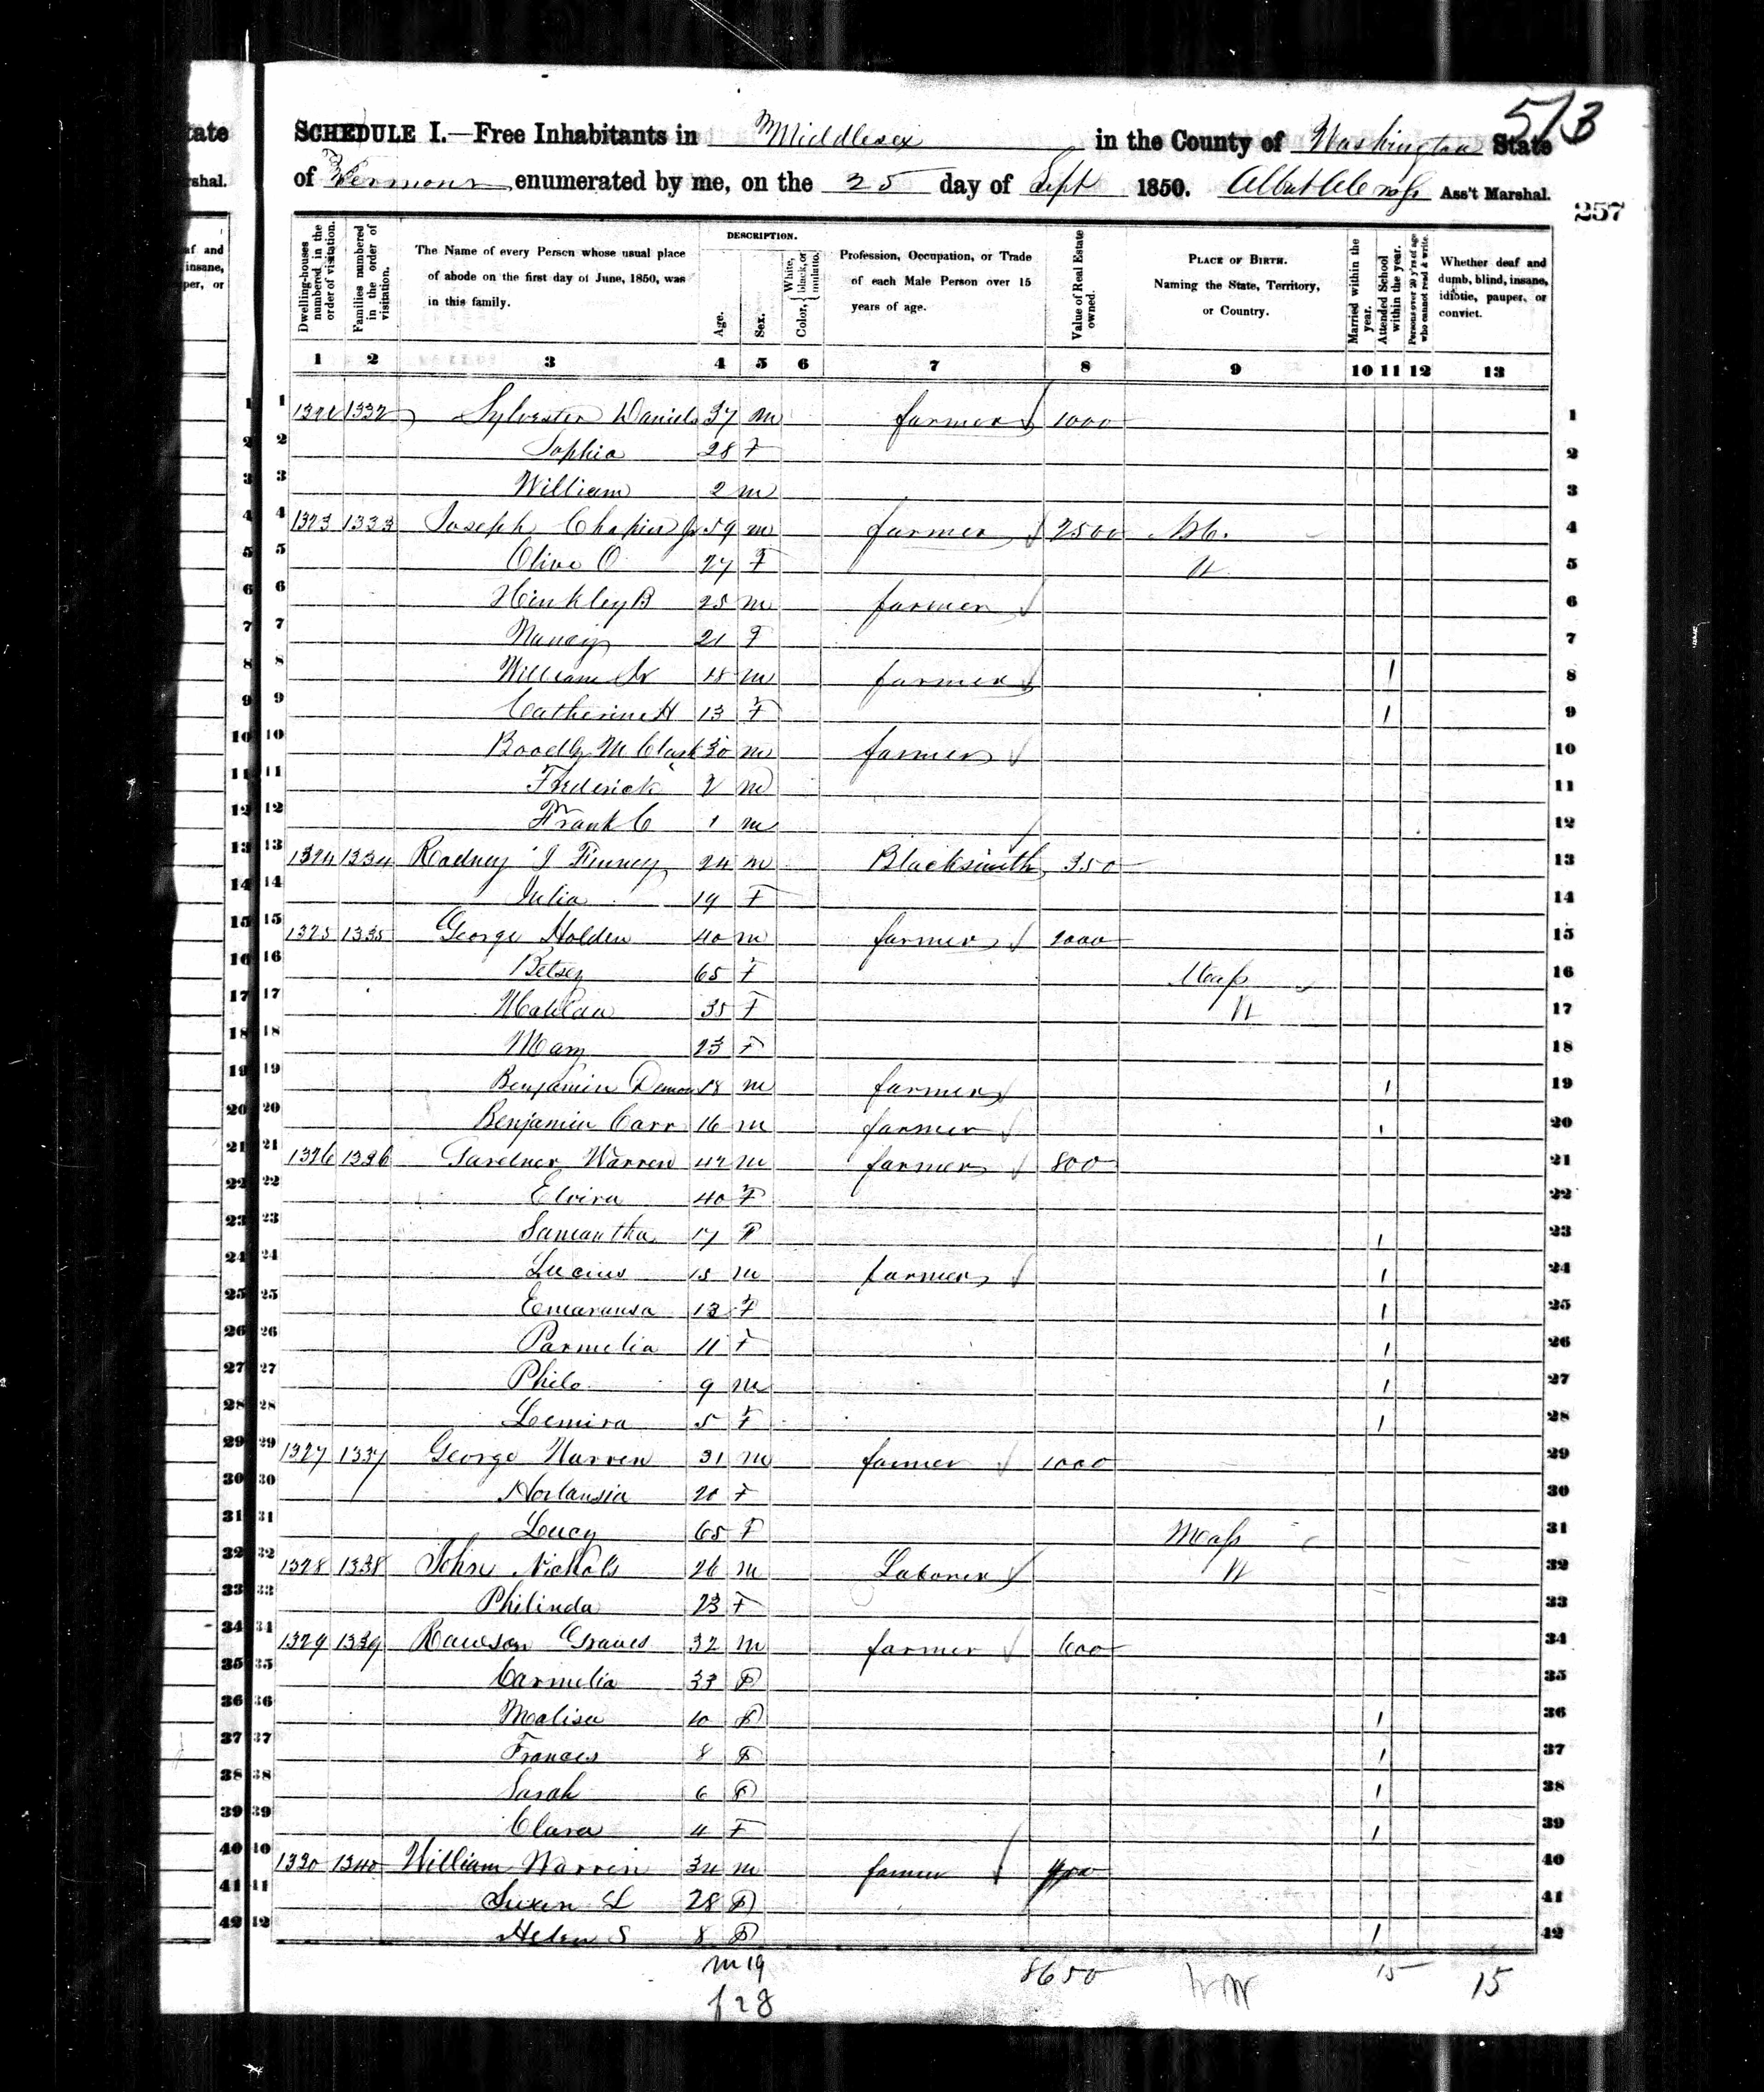 573
SCHEDULE I.—Free Inhabitants in Middlesex in the County of Washington State
of Vermont enumerated by me, on the 25 day of Sept 1850. Ass't Marshal.
257
Dwelling-houses numbered in the order of visitation.
Families numbered in the order of visitation.
The Name of every Person whose usual place of abode on the first day of June, 1850, was in this family.
DESCRIPTION.
Age.
Sex.
Color, { White, black, or mulatto.
Profession, Occupation, or Trade of each Male Person over 15 years of age.
Value of Real Estate owned.
PLACE OF BIRTH. Naming the State, Territory, or Country.
Married within the year.
Attended School within the year.
Persons over 20 y'rs of age who cannot read & write.
Whether deaf and dumb, blind, insane, idiotic, pauper, or convict.
1 2 3 4 5 6 7 8 9 10 11 12 13
1 1332 Sylvester Daniels 37 m farmer 1000 1
2 Sophia 28 F 2
3 William 2 m 3
4 1323 1333 Joseph Chapin Jr 59 m farmer 2500 4
5 Olive O 27 F 5
6 Hinkley B 25 m farmer 6
7 Nancy 21 F 7
8 William 18 m farmer 1 8
9 Catherine H 13 F 1 9
10 M Clark 30 m farmer 10
11 Frederick 2 m 11
12 Frank C 1 m 12
13 1324 1334 Rodney J Finney 24 m Blacksmith 350 13
14 Julia 19 F 14
15 1325 1335 George Holden 40 m farmer 15
16 Betsey 65 F Mass 16
17 35 F 17
18 Mary 23 F 18
19 Benjamin 18 m farmer 1 19
20 Benjamin Carr 16 m farmer 1 20
21 1326 1336 Gardner Warren 42 m farmer 800 21
22 Elvira 40 F 22
23 Samantha 17 F 1 23
24 Lucius 15 m farmer 1 24
25 13 F 1 25
26 Parmelia 11 F 1 26
27 Philo 9 m 1 27
28 Lemira 5 F 1 28
29 1327 1337 George Warren 31 m farmer 1000 29
30 Hortansia 20 F 30
31 Lucy 65 F Mass 31
32 1328 1338 John Nichols 26 m Laborer 32
33 Philinda 23 F 33
34 1329 1339 Rawson Graves 32 m farmer 600 34
35 Carmelia 33 F 35
36 Malisa 10 F 1 36
37 Frances 8 F 1 37
38 Sarah 6 F 1 38
39 Clara 4 F 1 39
40 1330 1340 William Warren 34 m farmer 40
41 Susan L 28 F 41
42 Helen S 8 F 1 42
m 19 8650 15 15
f 28